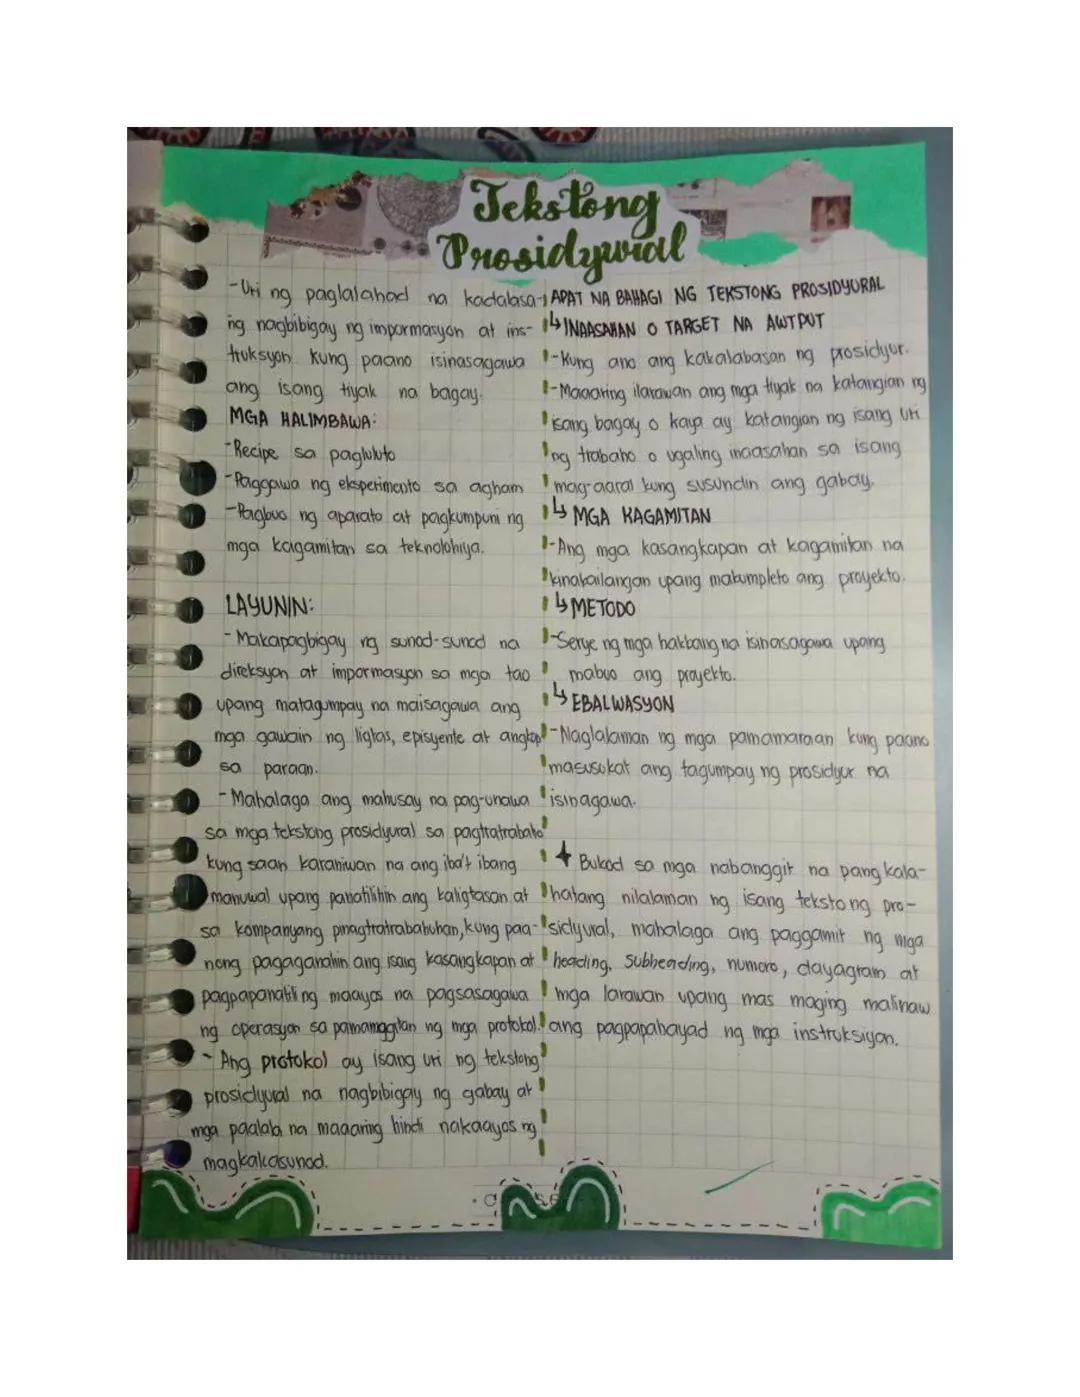 Tekstong
Prosidyural
-Uri ng paglalahad na kadalasa-
ng nagbibigay ng impormasyon at ins-
truksyon kung paano isinasagawa
ang isang tiyak na bagay.
MGA HALIMBAWA:
-Recipe sa pagluluto
-Paggawa ng eksperimento sa agham
-Pagbuo ng aparato at pagkumpuni ng
mga kagamitan sa teknolohiya.
LAYUNIN:
-Makapagbigay ng sunod-sunod na
direksyon at impormasyon sa mga tao
upang matagumpay na maisagawa ang
mga gawain ng ligtas, episyente at angkop
sa paraan.
-Mahalaga ang mahusay na pag-unawa
sa mga tekstong prosidyural sa pagtratrabaho
kung saan karaniwan na ang iba't ibang
manuwal upang panatilihin ang kaligtasan at
sa kompanyang pinagtratrabahuhan, kung paa-
nong pagaganahin ang isang kasangkapan at
pagpapanatiling maayos na pagsasagawa
ng operasyon sa pamamagitan ng mga protokol.
-Ang protokol ay isang uri ng tekstong
prosidyural na nagbibigay ng gabay at
mga paalala na maaaring hindi nakaayos ng
magkakasunod.
APAT NA BAHAGI NG TEKSTONG PROSIDYURAL
↳ INAASAHAN O TARGET NA AWTPUT
-Kung ano ang kakalabasan ng prosidyur.
-Maaaring ilarawan ang mga tiyak na katangian ng
isang bagay o kaya ay katangian ng isang uri
ng trabaho o ugaling inaasahan sa isang
mag-aaral kung susundin ang gabay.
↳ MGA KAGAMITAN
-Ang mga kasangkapan at kagamitan na
kinakailangan upang makumpleto ang proyekto.
↳ METODO
-Serye ng mga hakbang na isinasagawa upang
mabuo ang proyekto.
↳ EBALWASYON
-Naglalaman ng mga pamamaraan kung paano
masusukat ang tagumpay ng prosidyur na
isinagawa.
Bukod sa mga nabanggit na pangkala-
hatang nilalaman ng isang tekstong pro-
sidyural, mahalaga ang paggamit ng mga
heading, subheading, numero, dayagram at
mga larawan upang mas maging malinaw
ang pagpapahayad ng mga instruksiyon.